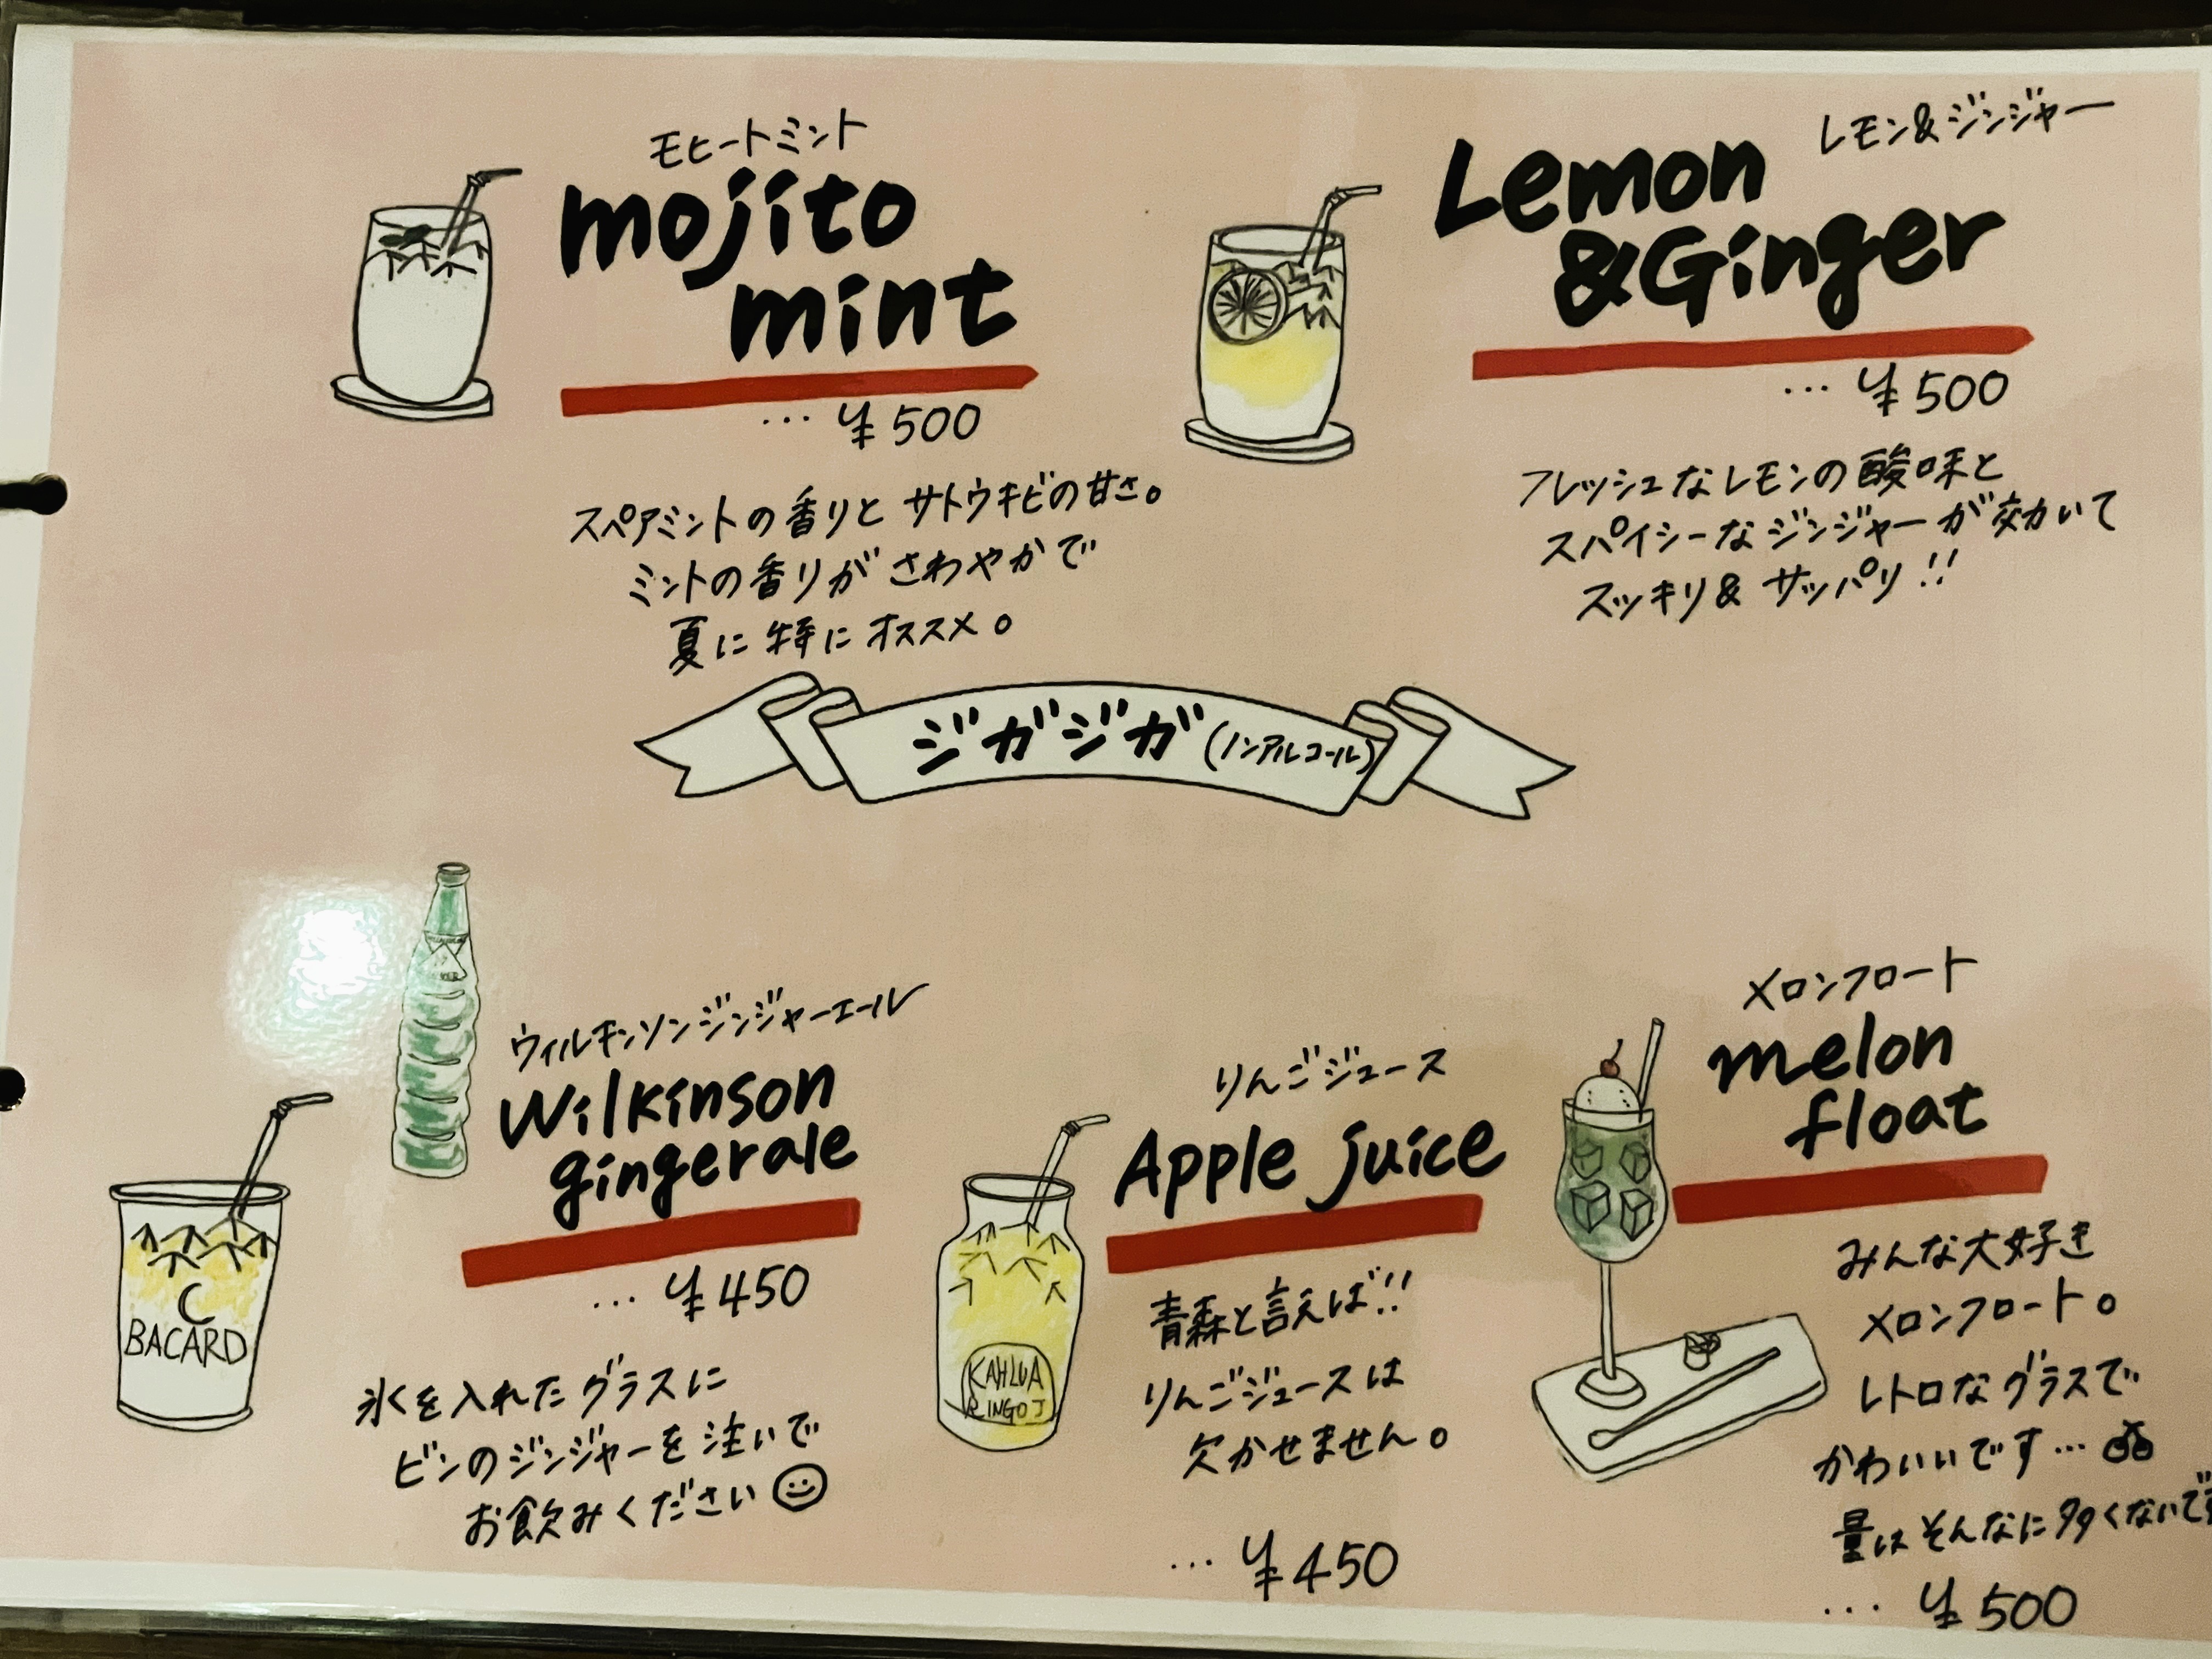 モヒートミント
mojito
mint
… ¥500
スペアミントの香りと サトウキビの甘さ。
ミントの香りが さわやかで
夏に 特に オススメ。
レモン&ジンジャー
Lemon
&Ginger
… ¥500
フレッシュなレモンの酸味と
スパイシーなジンジャーが効いて
スッキリ& サッパリ!!
ジガジガ(ノンアルコール)
ウィルキンソンジンジャーエール
Wilkinson
gingerale
… ¥450
BACARD
氷を入れたグラスに
ビンのジンジャーを注いで
お飲みください
りんごジュース
Apple juice
KAHLUA
RINGOJ
青森と言えば!!
りんごジュースは
欠かせません。
… ¥450
メロンフロート
melon
float
みんな大好き
メロンフロート。
レトロなグラスで
かわいいです…
量は そんなに多くないです
… ¥500